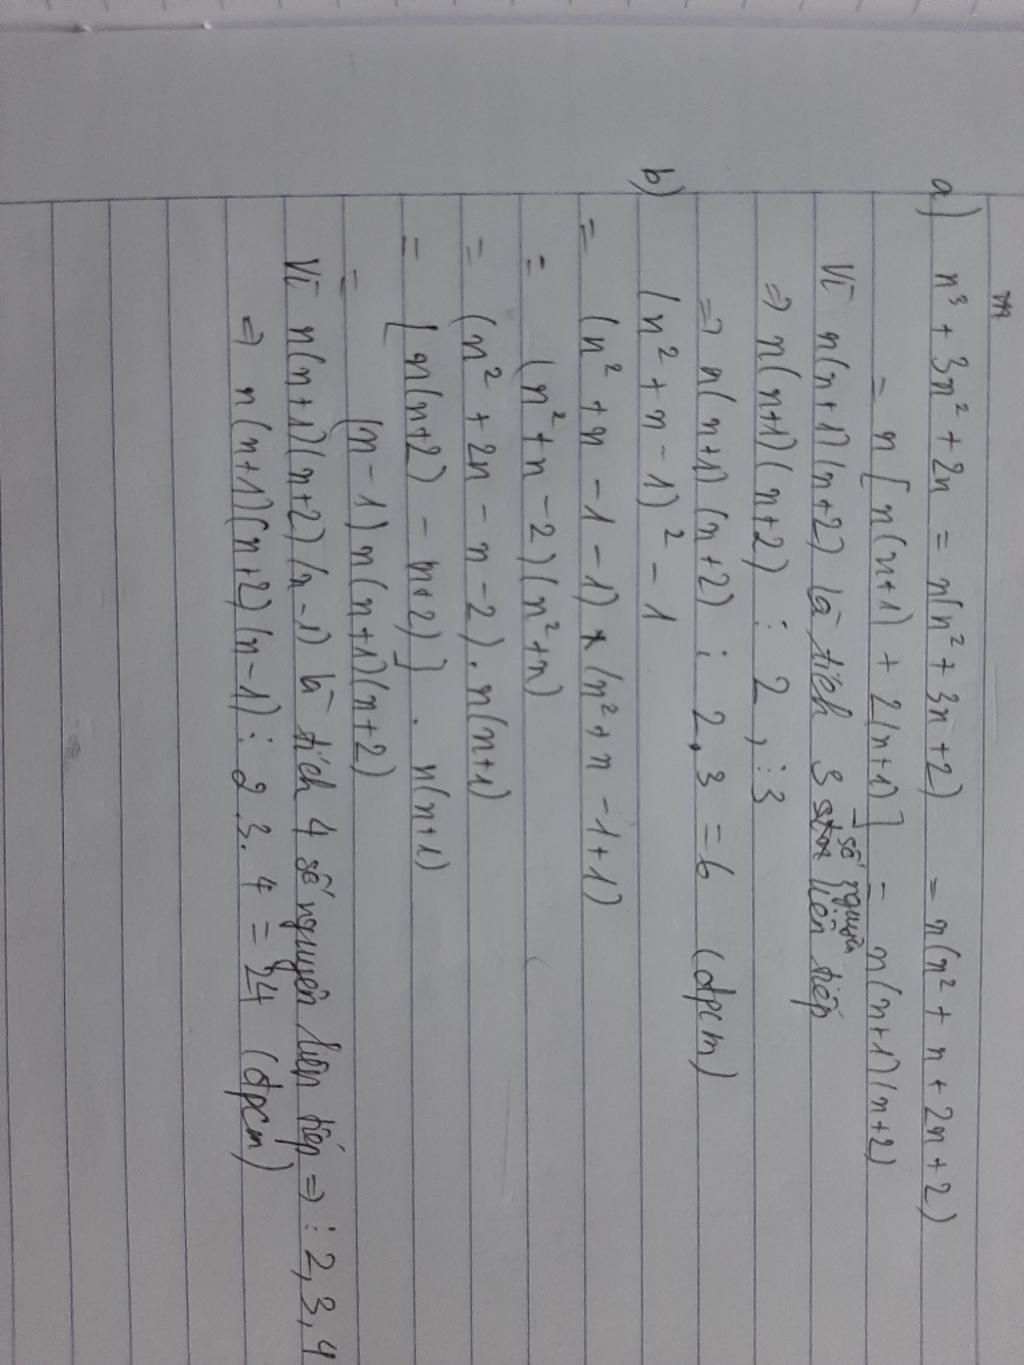 a) n³ + 3n² + 2n = n(n² + 3n + 2) = n(n² + n + 2n + 2)
= n[n(n+1) + 2(n+1)] = n(n+1)(n+2)
Vì n(n+1)(n+2) là tích 3 số nguyên liên tiếp
⇒ n(n+1)(n+2) ⋮ 2, ⋮ 3
⇒ n(n+1)(n+2) ⋮ 2.3 = 6 (đpcm)
b) (n² + n - 1)² - 1
= (n² + n - 1 - 1) * (n² + n - 1 + 1)
= (n² + n - 2)(n² + n)
= (n² + 2n - n - 2) . n(n+1)
= [n(n+2) - n+2)] . n(n+1)
= (n-1) n(n+1)(n+2)
Vì n(n+1)(n+2)(n-1) là tích 4 số nguyên liên tiếp ⇒ ⋮ 2, 3, 4
⇒ n(n+1)(n+2)(n-1) ⋮ 2.3.4 = 24 (đpcm)